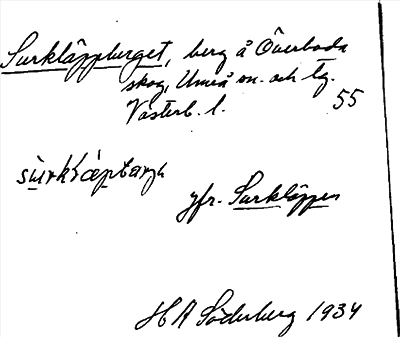 Surkläppberget, berg å Överboda
skog, Umeå sn. och tg.
Västerb. l. 55
sùrkḷäpbærgə
jfr. Surkläppen
H A Söderberg 1934